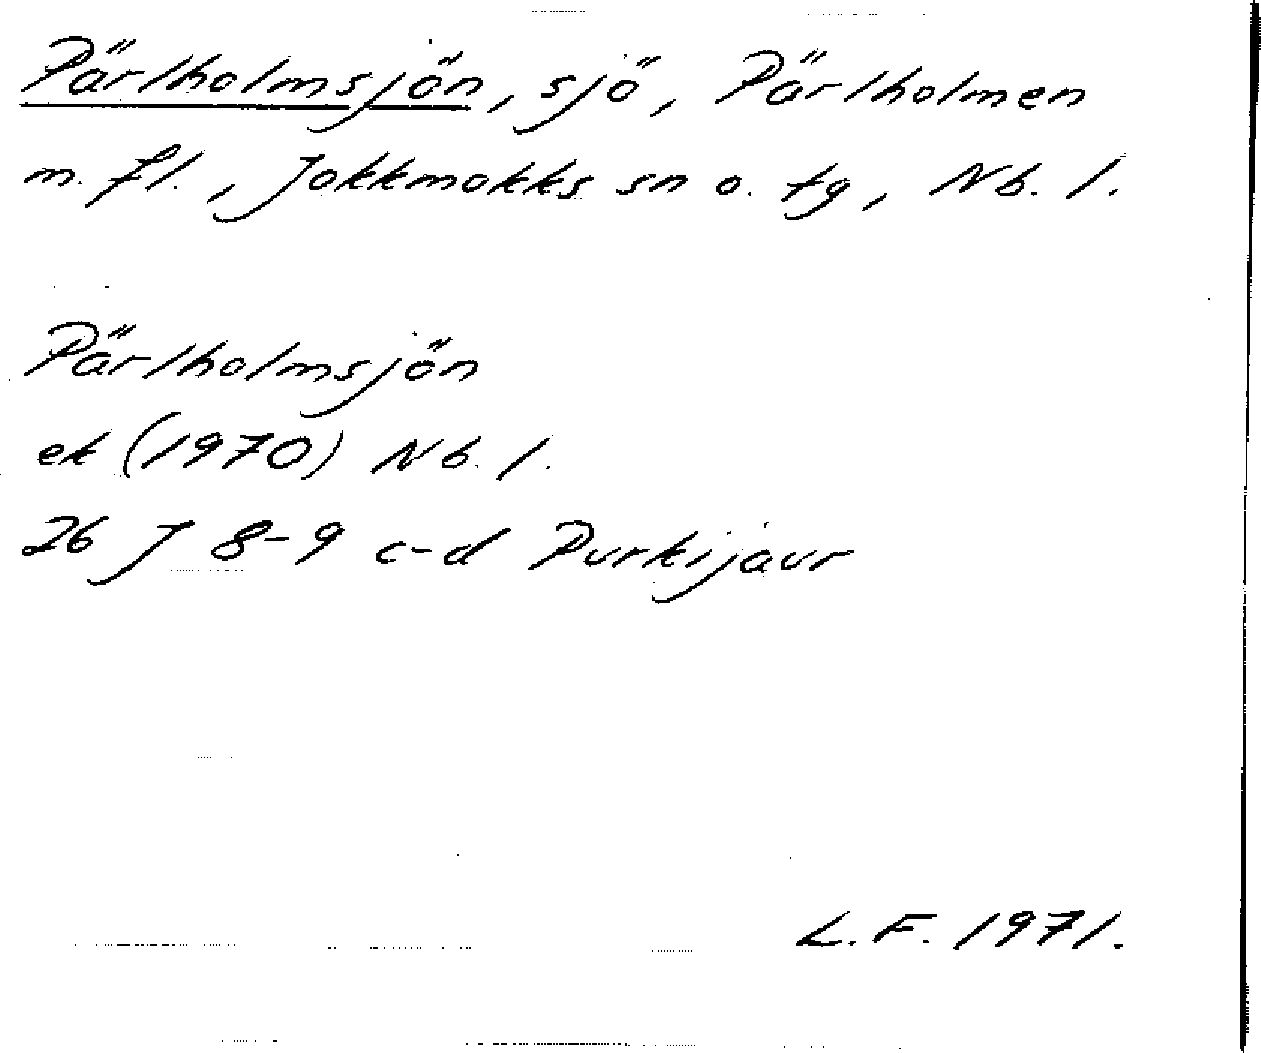 Pärlholmsjön, sjö, Pärlholmen
m. fl., Jokkmokks sn o. tg, Nb. l.
Pärlholmsjön
ek (1970) Nb. l.
26 J 8-9 c-d Purkijaur
L. F. 1971.